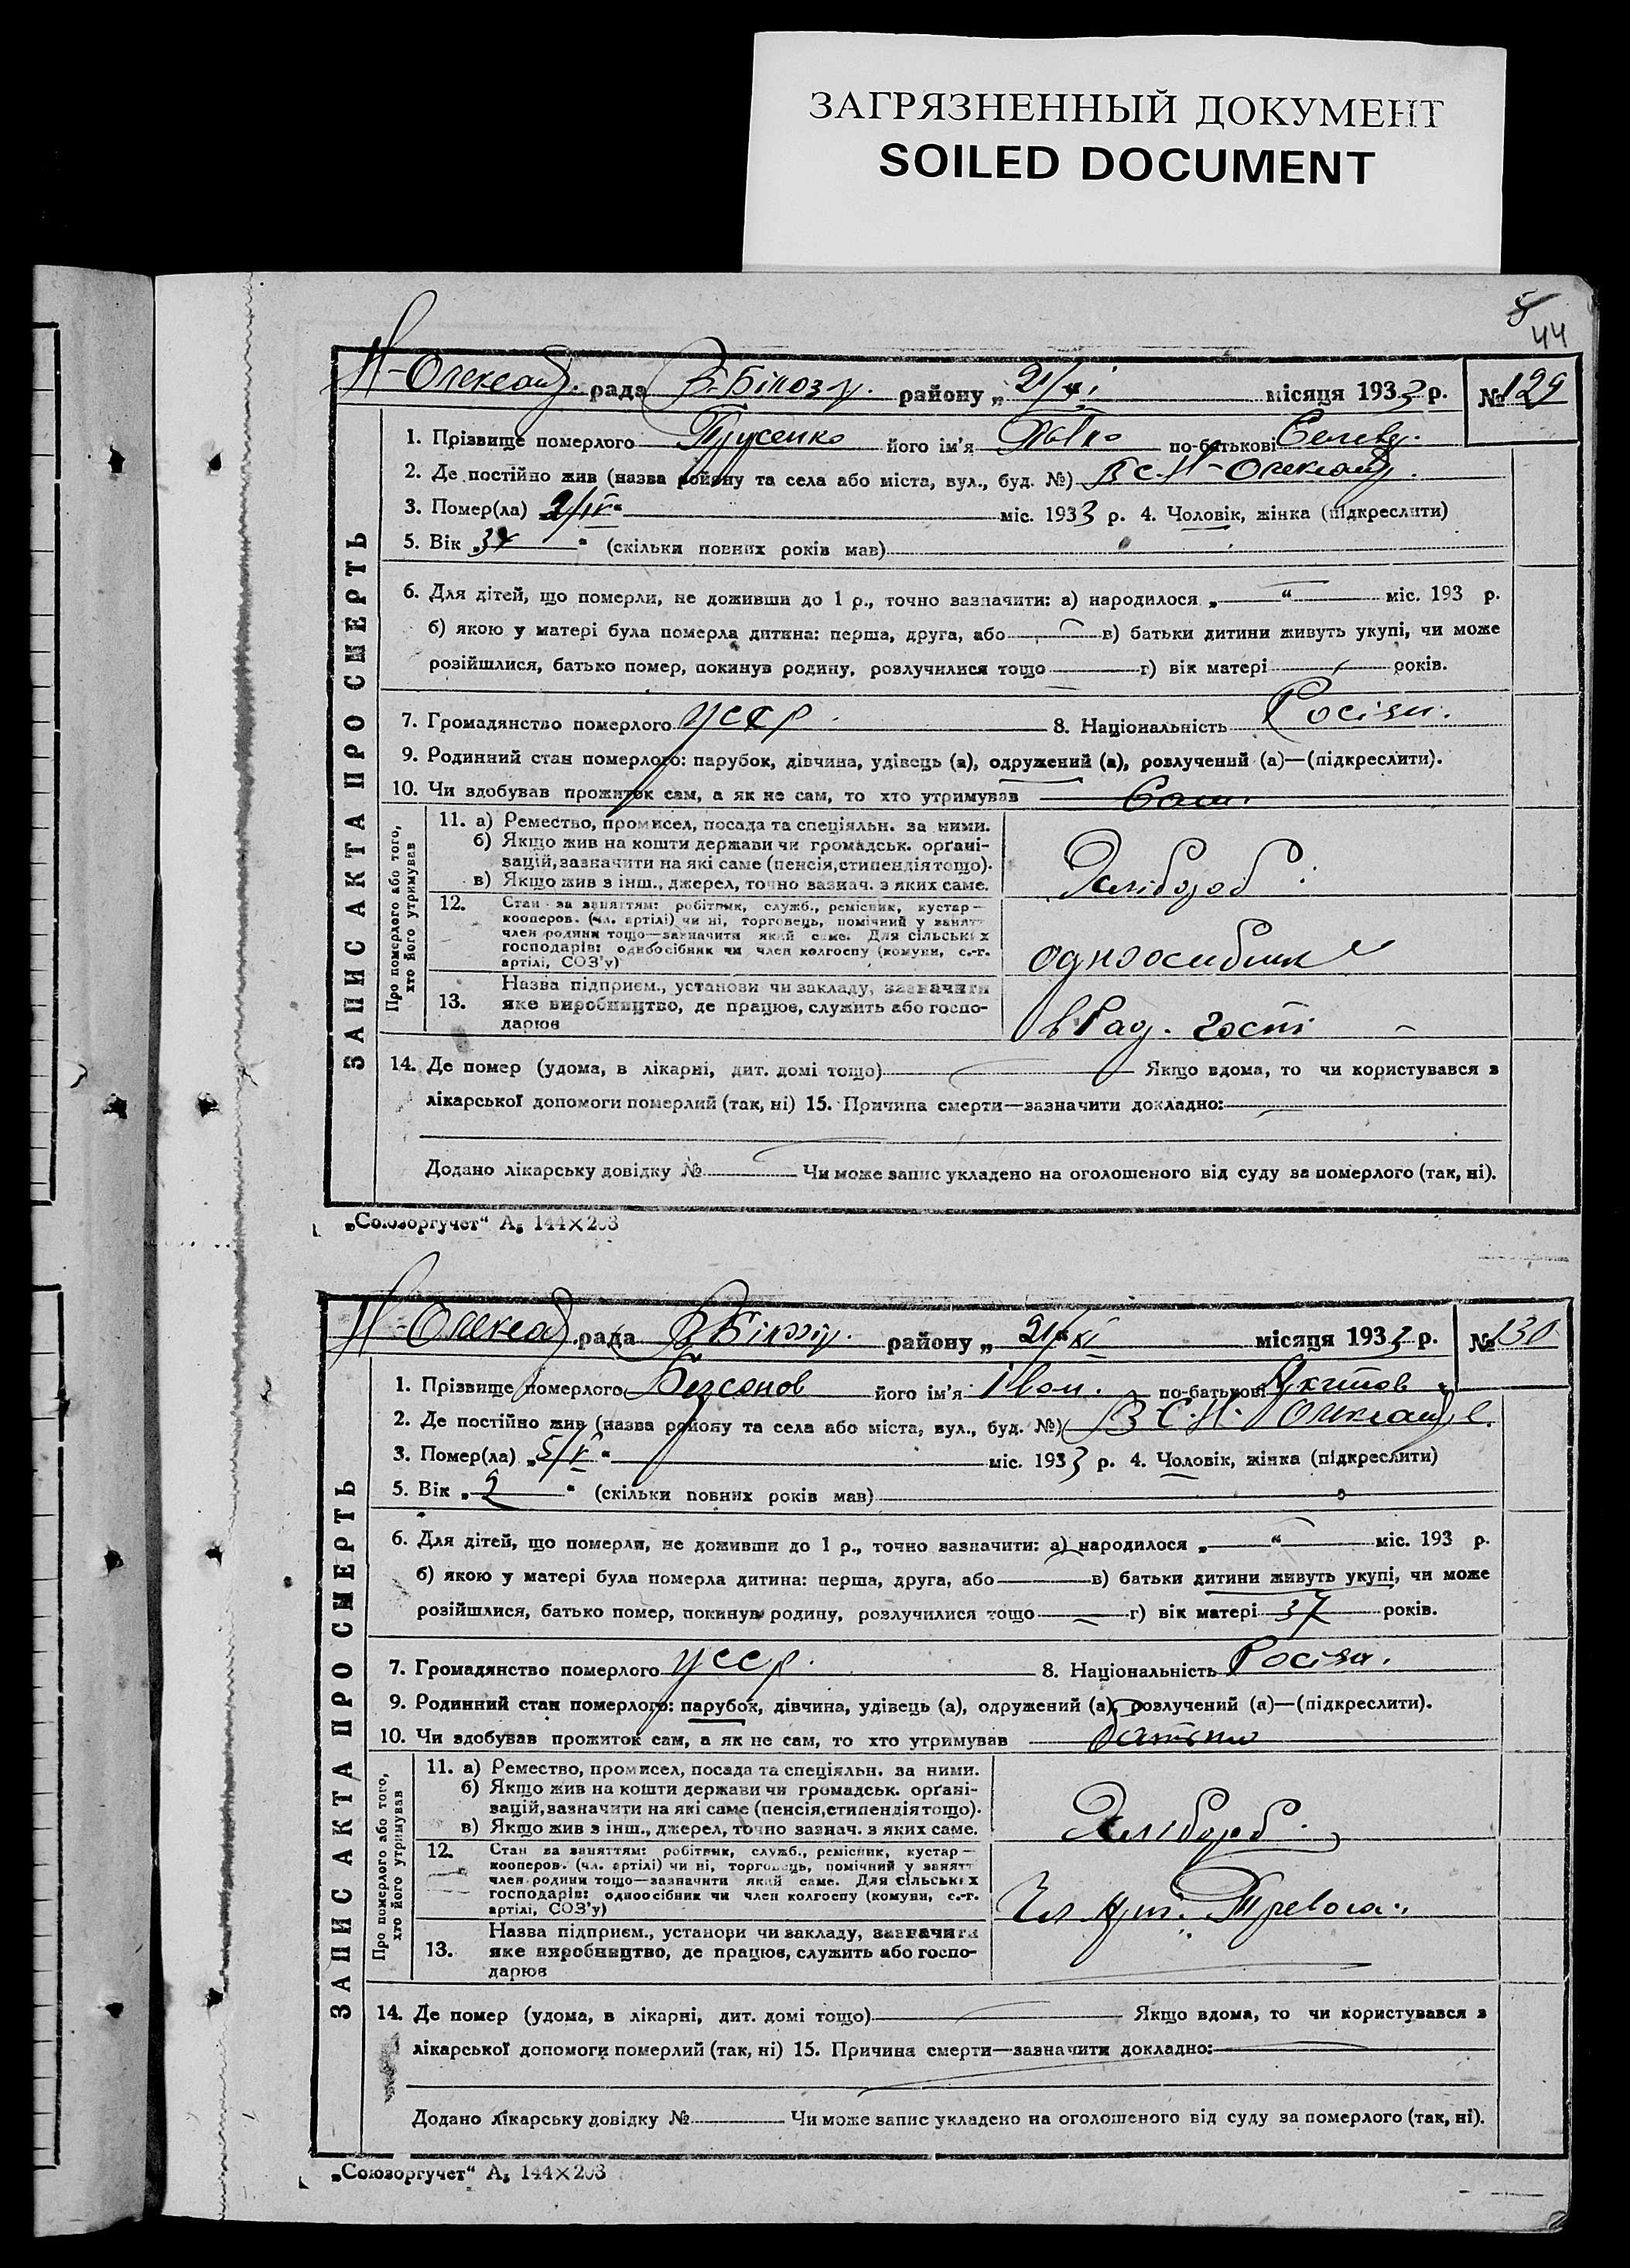 ЗАГРЯЗНЕННЫЙ ДОКУМЕНТ
SOILED DOCUMENT
44
Н-Олександ. рада В-Білозір. району „ 21/XI місяця 1933 р. № 129
1. Прізвище померлого його ім'я по-батькові
2. Де постійно жив (назва району та села або міста, вул., буд. №) В с. Н-Олександ.
3. Помер(ла) міс. 1933 р. 4. Чоловік, жінка (підкреслити)
5. Вік „ “ (скільки повних років мав)
6. Для дітей, що померли, не доживши до 1 р., точно зазначити: а) народилося „ “ міс. 193 р.
б) якою у матері була померла дитина: перша, друга, або в) батьки дитини живуть укупі, чи може
розійшлися, батько помер, покинув родину, розлучилися тощо г) вік матері років.
7. Громадянство померлого УССР. 8. Національність Росіян.
9. Родинний стан померлого: парубок, дівчина, удівець (а), одружений (а), розлучений (а)—(підкреслити).
10. Чи здобував прожиток сам, а як не сам, то хто утримував Сам.
ЗАПИС АКТА ПРО СМЕРТЬ
Про померлого або того, хто його утримував
11. а) Ремество, промисел, посада та спеціяльн. за ними.
б) Якщо жив на кошти держави чи громадськ. орґані-
зацій, зазначити на які саме (пенсія, стипендія тощо).
в) Якщо жив з інш., джерел, точно зазнач. з яких саме.
Хлібороб.
12. Стан за заняттям: робітник, служб., ремісник, кустар—
кооперов. (чл. артілі) чи ні, торговець, помічний у занятт
член родини тощо—зазначити який саме. Для сільських
господарів: одноосібник чи член колгоспу (комуни, с.-г.
артілі, СОЗ'у)
одноосибник
13. Назва підприєм., установи чи закладу, зазначити
яке виробництво, де працює, служить або госпо-
дарює
14. Де помер (удома, в лікарні, дит. домі тощо) Якщо вдома, то чи користувався з
лікарської допомоги померлий (так, ні) 15. Причина смерти—зазначити докладно:
Додано лікарську довідку № Чи може запис укладено на оголошеного від суду за померлого (так, ні).
„Союзоргучет“ А₅ 144×203
Н-Олександ. рада В-Білозір. району „ 21/XI місяця 1933 р. № 130
1. Прізвище померлого Безсонов його ім'я Іван. по-батькові
2. Де постійно жив (назва району та села або міста, вул., буд. №) В с. Н. Олександ.
3. Помер(ла) „5/V“ міс. 1933 р. 4. Чоловік, жінка (підкреслити)
5. Вік „ 2 “ (скільки повних років мав)
6. Для дітей, що померли, не доживши до 1 р., точно зазначити: а) народилося „ “ міс. 193 р.
б) якою у матері була померла дитина: перша, друга, або в) батьки дитини живуть укупі, чи може
розійшлися, батько помер, покинув родину, розлучилися тощо г) вік матері 37 років.
7. Громадянство померлого УССР. 8. Національність Росіян.
9. Родинний стан померлого: парубок, дівчина, удівець (а), одружений (а), розлучений (а)—(підкреслити).
10. Чи здобував прожиток сам, а як не сам, то хто утримував батько
ЗАПИС АКТА ПРО СМЕРТЬ
Про померлого або того, хто його утримував
11. а) Ремество, промисел, посада та спеціяльн. за ними.
б) Якщо жив на кошти держави чи громадськ. орґані-
зацій, зазначити на які саме (пенсія, стипендія тощо).
в) Якщо жив з інш., джерел, точно зазнач. з яких саме.
Хлібороб.
12. Стан за заняттям: робітник, служб., ремісник, кустар—
кооперов. (чл. артілі) чи ні, торговець, помічний у занятт
член родини тощо—зазначити який саме. Для сільських
господарів: одноосібник чи член колгоспу (комуни, с.-г.
артілі, СОЗ'у)
13. Назва підприєм., установи чи закладу, зазначити
яке виробництво, де працює, служить або госпо-
дарює
14. Де помер (удома, в лікарні, дит. домі тощо) Якщо вдома, то чи користувався з
лікарської допомоги померлий (так, ні) 15. Причина смерти—зазначити докладно:
Додано лікарську довідку № Чи може запис укладено на оголошеного від суду за померлого (так, ні).
„Союзоргучет“ А₅ 144×203